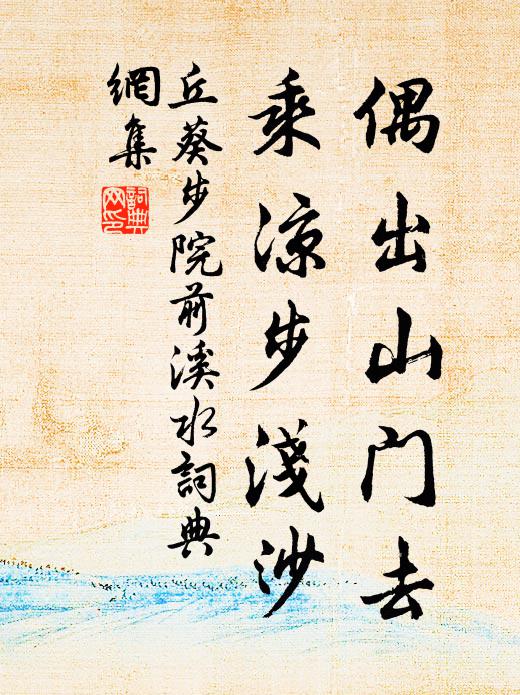 偶出山门去
乘凉步淺沙
丘葵步院前溪水詞典
網集
詞典
网印